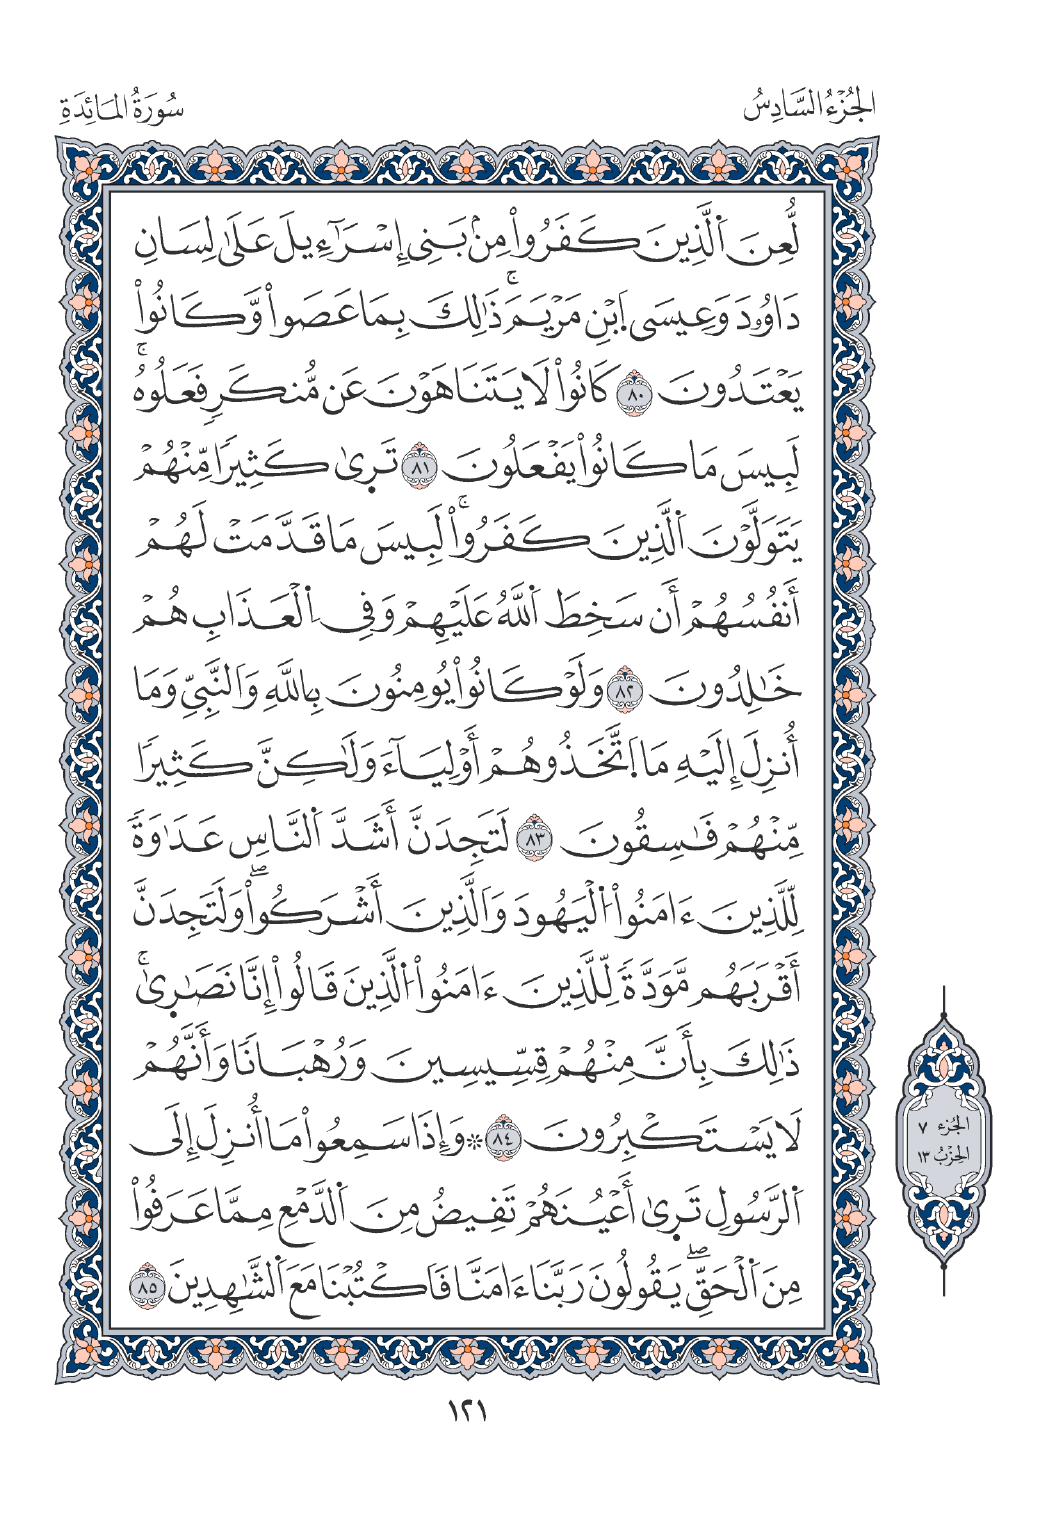 الجُزْءُ السَّادِسُ
سُورَةُ المَائِدَةِ
لُّعِنَ اَ۬لَّذِينَ كَفَرُواْ مِنۢ بَنِي إِسْرَآءِيلَ عَلَىٰ لِسَانِ
دَاوُۥدَ وَعِيسَى اَ۪بْنِ مَرْيَمَۚ ذَٰلِكَ بِمَا عَصَواْ وَّكَانُواْ
يَعْتَدُونَ ٨٠ كَانُواْ لَا يَتَنَاهَوْنَ عَن مُّنكَرٍ فَعَلُوهُۚ
لَبِيسَ مَا كَانُواْ يَفْعَلُونَ ٨١ تَر۪ىٰ كَثِيرًا مِّنْهُمْ
يَتَوَلَّوْنَ اَ۬لَّذِينَ كَفَرُواْۚ لَبِيسَ مَا قَدَّمَتْ لَهُمْ
أَنفُسُهُمْ أَن سَخِطَ اَ۬للَّهُ عَلَيْهِمْ وَفِي اِ۬لْعَذَابِ هُمْ
خَٰلِدُونَ ٨٢ وَلَوْ كَانُواْ يُومِنُونَ بِاللَّهِ وَالنَّبِيِّ وَمَا
أُنزِلَ إِلَيْهِ مَا اَ۪تَّخَذُوهُمْ أَوْلِيَآءَ وَلَٰكِنَّ كَثِيرًا
مِّنْهُمْ فَٰسِقُونَ ٨٣ لَتَجِدَنَّ أَشَدَّ اَ۬لنَّاسِ عَدَٰوَةً
لِّلَّذِينَ ءَامَنُواْ اُ۬لْيَهُودَ وَالَّذِينَ أَشْرَكُواْۖ وَلَتَجِدَنَّ
أَقْرَبَهُم مَّوَدَّةً لِّلَّذِينَ ءَامَنُواْ اُ۬لَّذِينَ قَالُواْ إِنَّا نَصَٰر۪ىٰۚ
ذَٰلِكَ بِأَنَّ مِنْهُمْ قِسِّيسِينَ وَرُهْبَانًا وَأَنَّهُمْ
لَا يَسْتَكْبِرُونَ ٨٤ ۞ وَإِذَا سَمِعُواْ مَا أُنزِلَ إِلَى
اَ۬لرَّسُولِ تَر۪ىٰ أَعْيُنَهُمْ تَفِيضُ مِنَ اَ۬لدَّمْعِ مِمَّا عَرَفُواْ
مِنَ اَ۬لْحَقِّۖ يَقُولُونَ رَبَّنَا ءَامَنَّا فَاكْتُبْنَا مَعَ اَ۬لشَّٰهِدِينَ ٨٥
الجُزء ٧
الحِزْبُ ١٣
١٢١